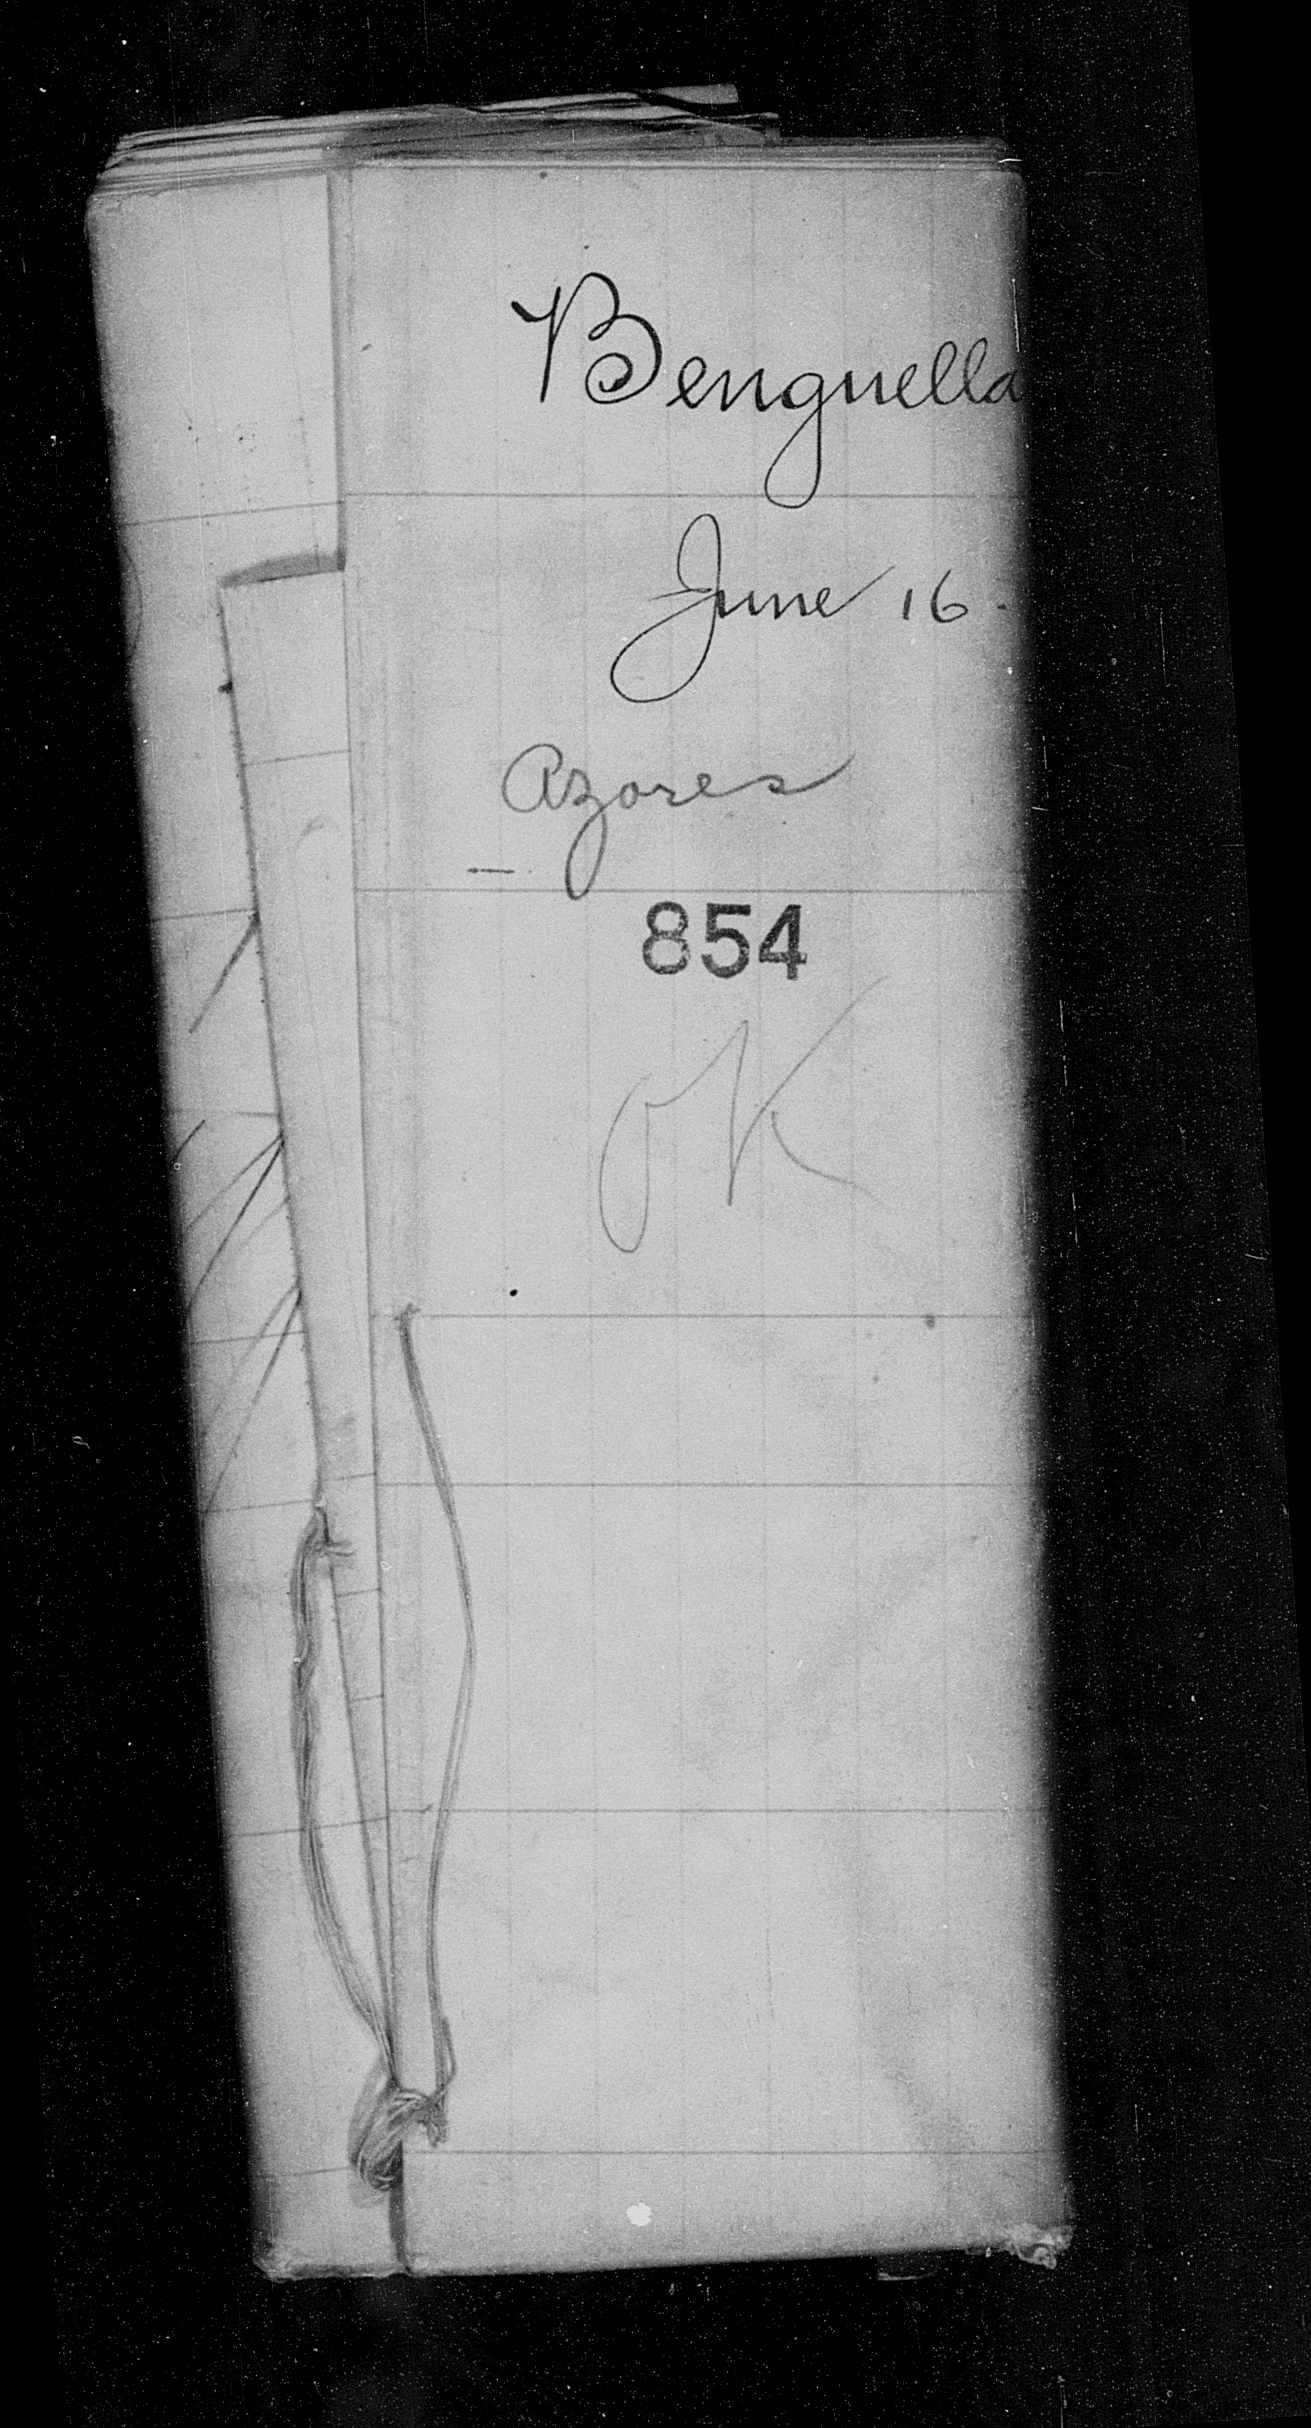 Benguella
June 16.
Azores
854
OK